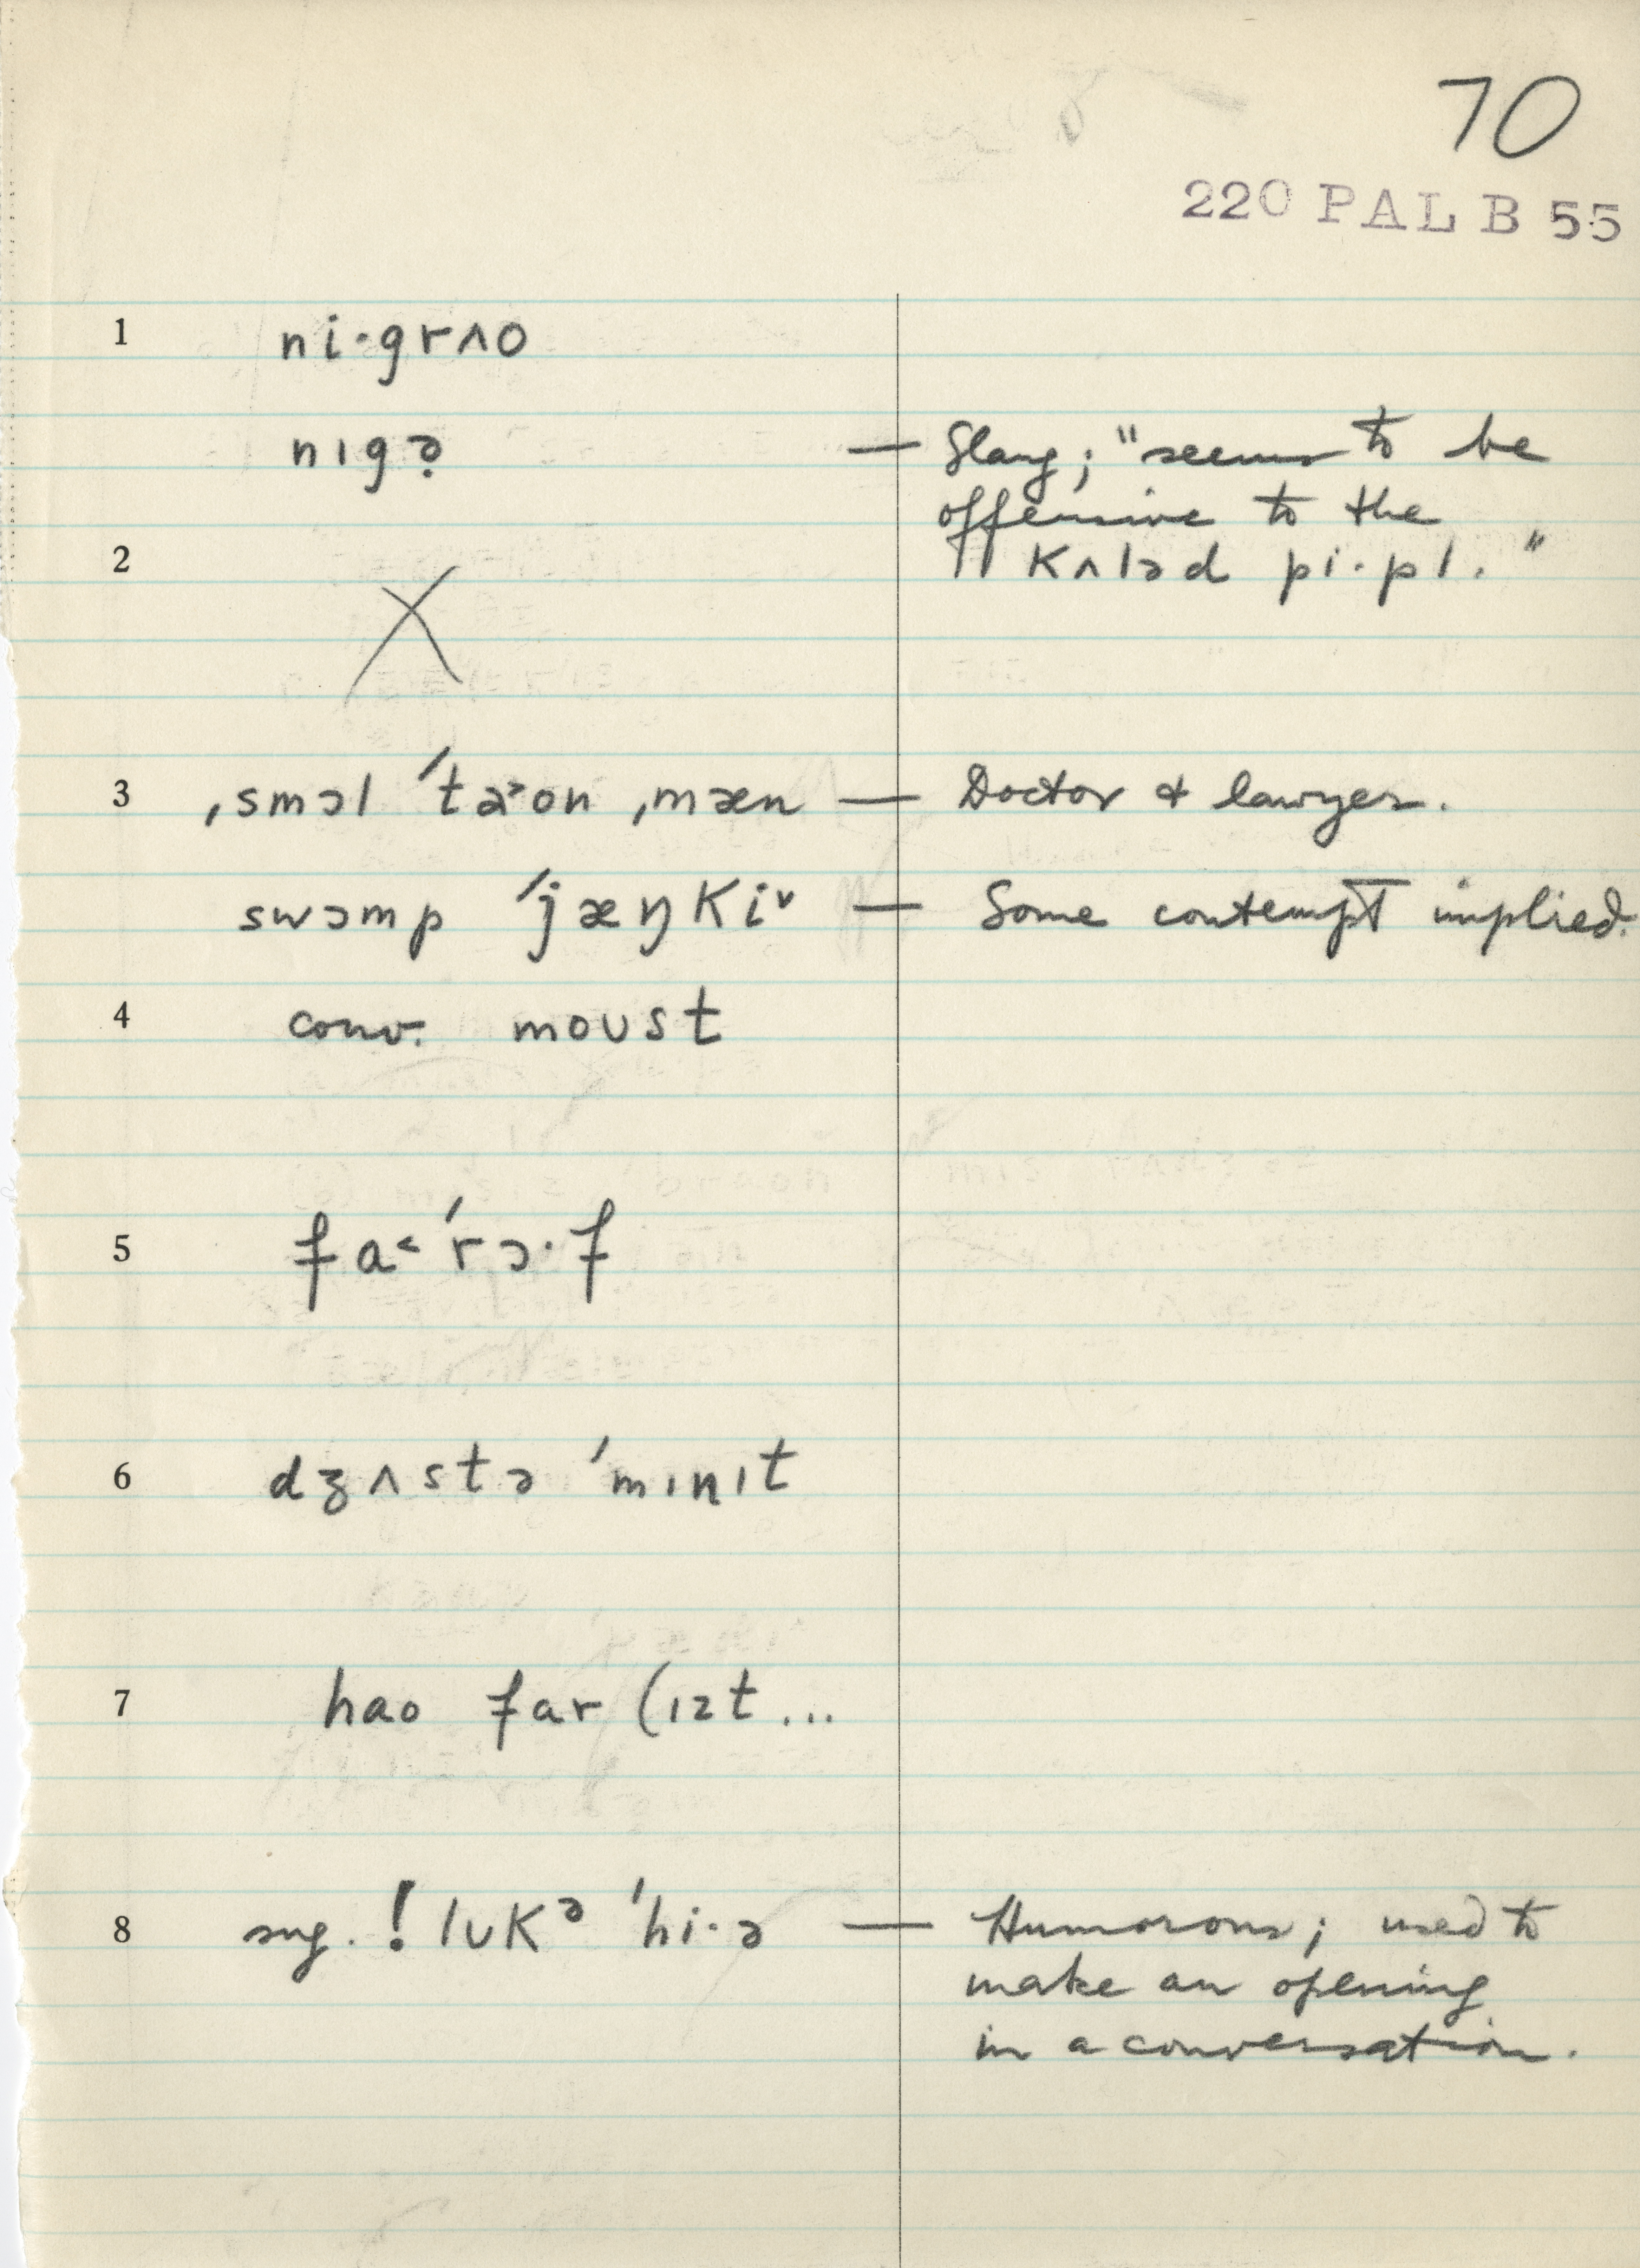 70
220 PAL B 55
1 ni·grʌo
nɪgə̣ — Slang; "seems to be
offensive to the
2 kʌləd pi·pl."
X
3 ˌsmɔl ˈta˃on ˌmæn — Doctor & lawyer.
swɔmp ˈjæŋki˅ — Some contempt implied.
4 conv. moust
5 fa˂ˈrɔ·f
6 dʒʌstə ˈmɪnɪt
7 hao far (ɪzt...
8 sug. ! lʊkᵊ ˈhi·ə — Humorous; used to
make an opening
in a conversation.